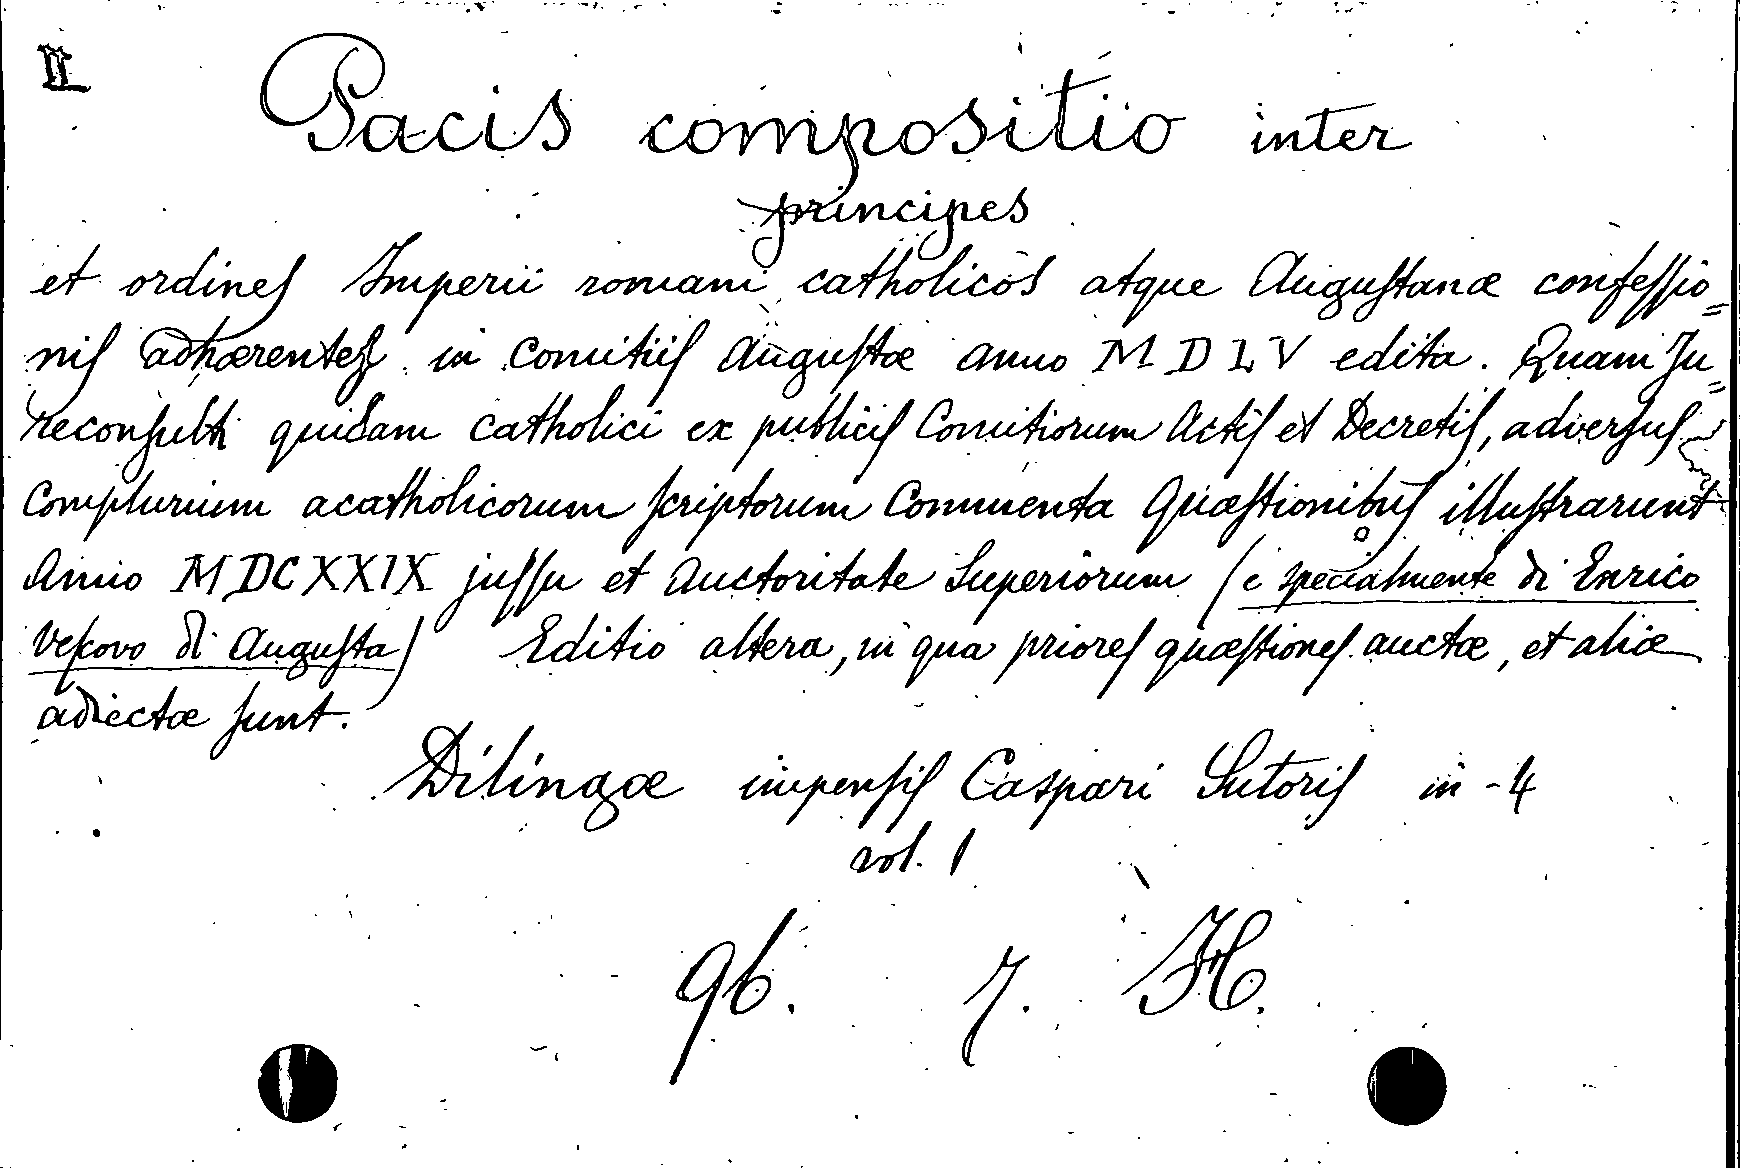 II
Pacis compositio inter
principes
et ordines Imperii romani catholicos atque Augustanæ confessio=
nis adhærentes in Comitiis Augustæ anno MDLV edita. Quam Ju=
reconsulti quidam catholici ex publicis Comitiorum Actis et Decretis, adversus
Complurium acatholicorum scriptorum Commenta Quæstionibus illustrarunt
Anno MDCXXIX jussu et Auctoritate Superiorum (e specialmente di Enrico
Vescovo di Augusta) Editio altera, in qua priores quæstiones auctæ, et aliæ
adiectæ sunt.
Dilingæ impensis Caspari Sutoris in-4
vol. 1
96. 7. H.